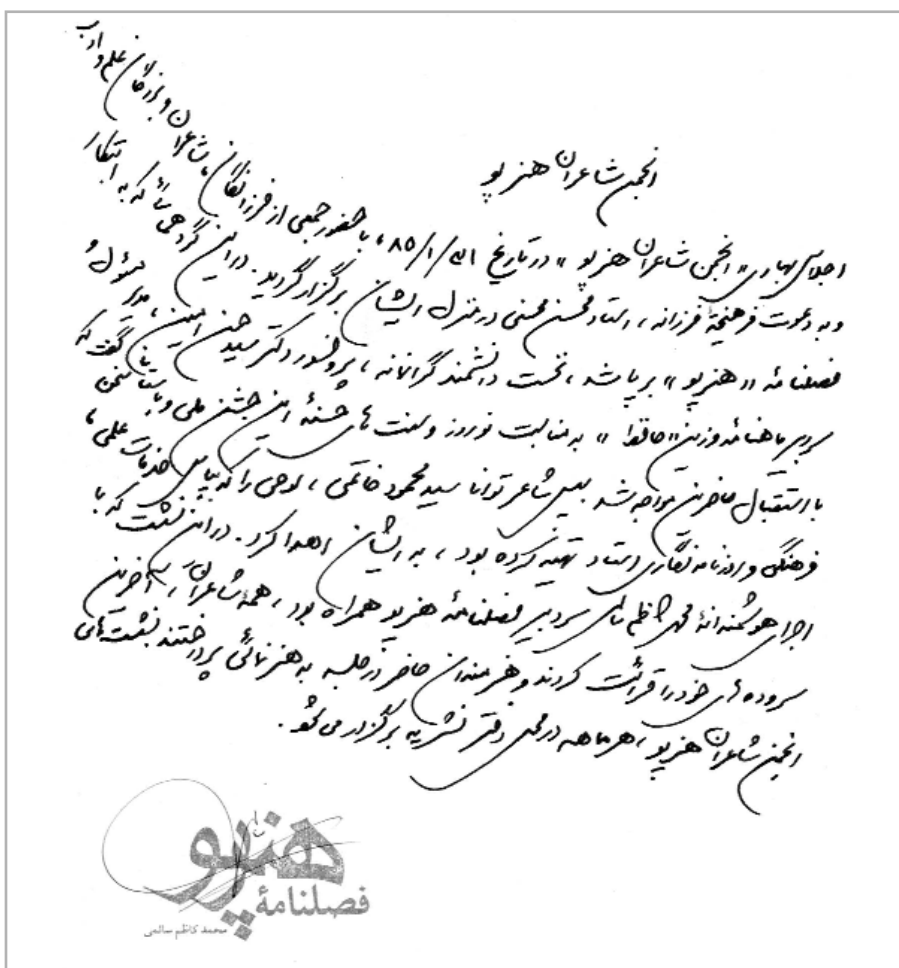 انجمن شاعران هنرپو
اجلاس بهاری «انجمن شاعران هنرپو» در تاریخ ۸۵/۱/۳۱، با حضور جمعی از فرزانگان، شاعران و علم و ادب
و به دعوت فرهیختهٔ فرزانه، استاد محسن محسنی در منزل ایشان برگزار گردید. در این گردهمائی که به ابتکار
فصلنامه «هنرپو» برپا شد، نخست دانشمند گرانمایه، پروفسور دکتر سید حسن امین، مدیر مسئول و
سردبیر ماهنامه وزین «حافظ» به مناسبت نوروز و سنت های حسنهٔ این جشن ملی و باستانی سخن گفت که
با استقبال حاضرین مواجه شد. سپس شاعر توانا سید محمود خاتمی، لوحی را که به پاس خدمات علمی،
فرهنگی و روزنامه نگاری استاد تهیه کرده بود، به ایشان اهدا کرد. در این نشست که با
اجرای هوشمندانهٔ محمد کاظم سالمی سردبیر فصلنامهٔ هنرپو همراه بود، همهٔ شاعران، آخرین
سروده های خود را قرائت کردند و هنرمندان حاضر در جلسه به هنرنمائی پرداختند. نشست های
انجمن شاعران هنرپو، هر ماهه در محل دفتر نشریه برگزار می شود.
هنرپو
فصلنامهٔ
محمد کاظم سالمی